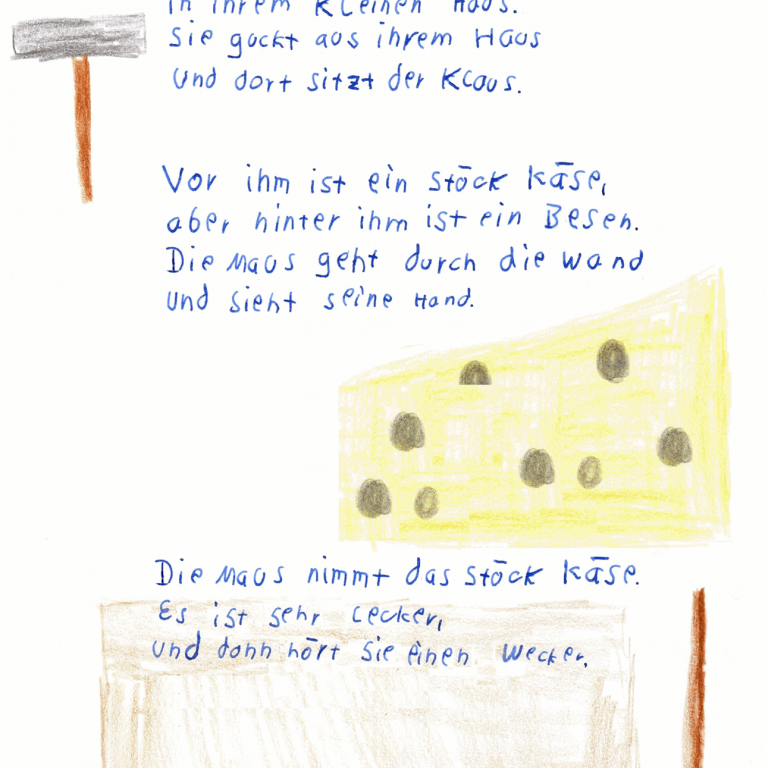 in ihrem kleinen Haus.
Sie guckt aus ihrem Haus
und dort sitzt der Klaus.
Vor ihm ist ein Stück Käse,
aber hinter ihm ist ein Besen.
Die Maus geht durch die Wand
und sieht seine Hand.
Die Maus nimmt das Stück Käse.
Es ist sehr lecker,
und dann hört sie einen Wecker.